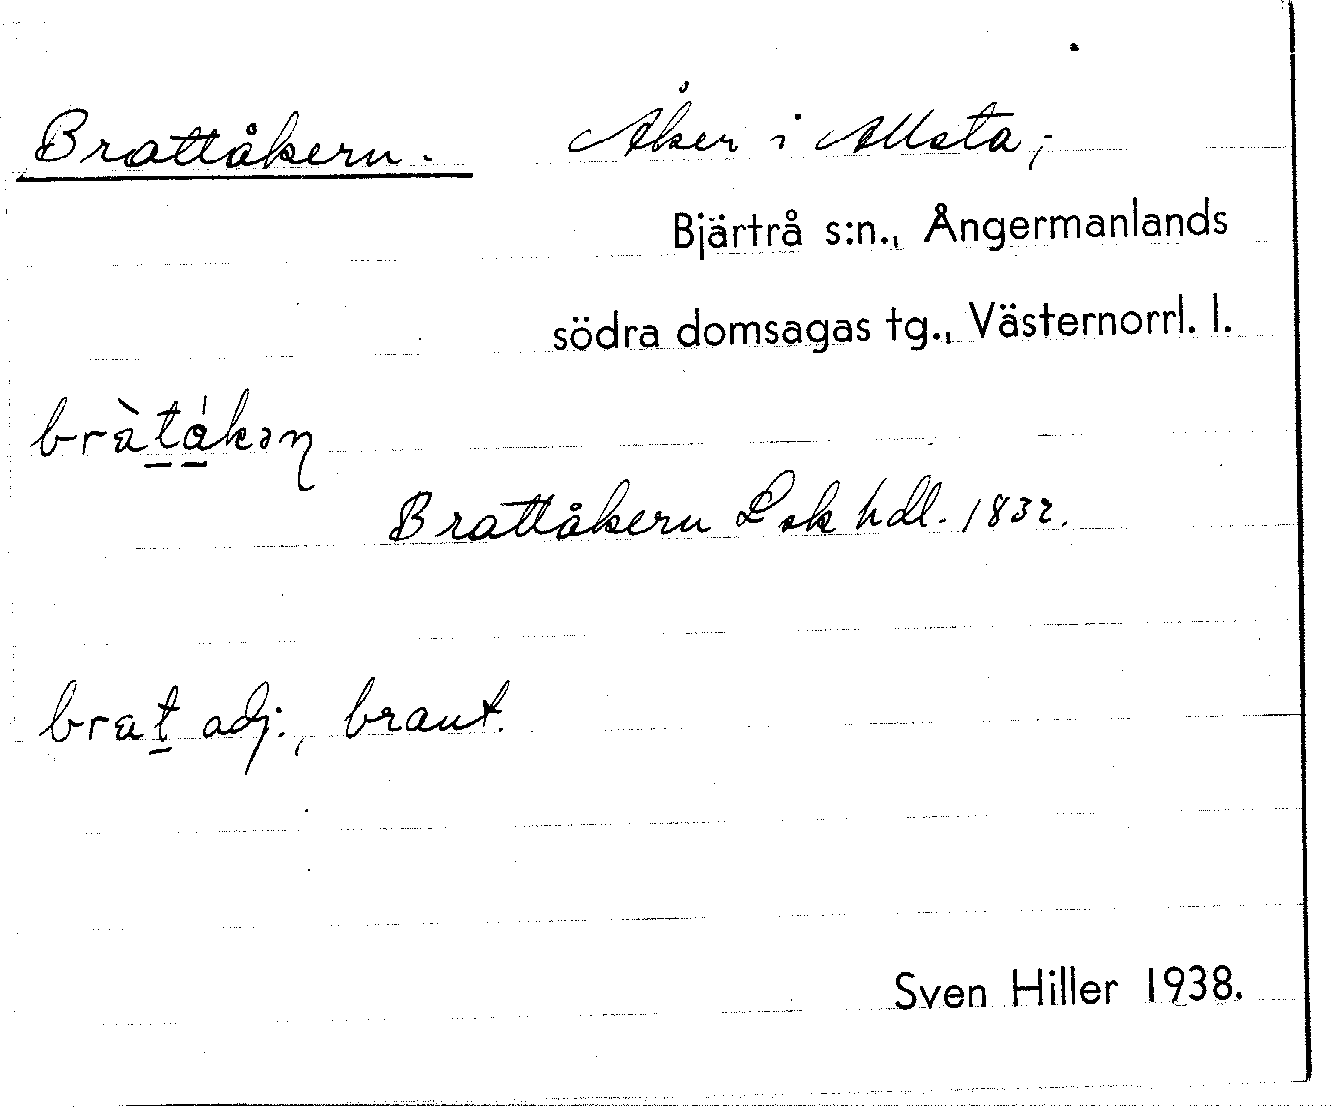 Brattåkern. Åker i Allsta;
Bjärtrå s:n., Ångermanlands
södra domsagas tg., Västernorrl. l.
Brattåkern Lsk hdl. 1832.
brat adj., brant.
Sven Hiller 1938.